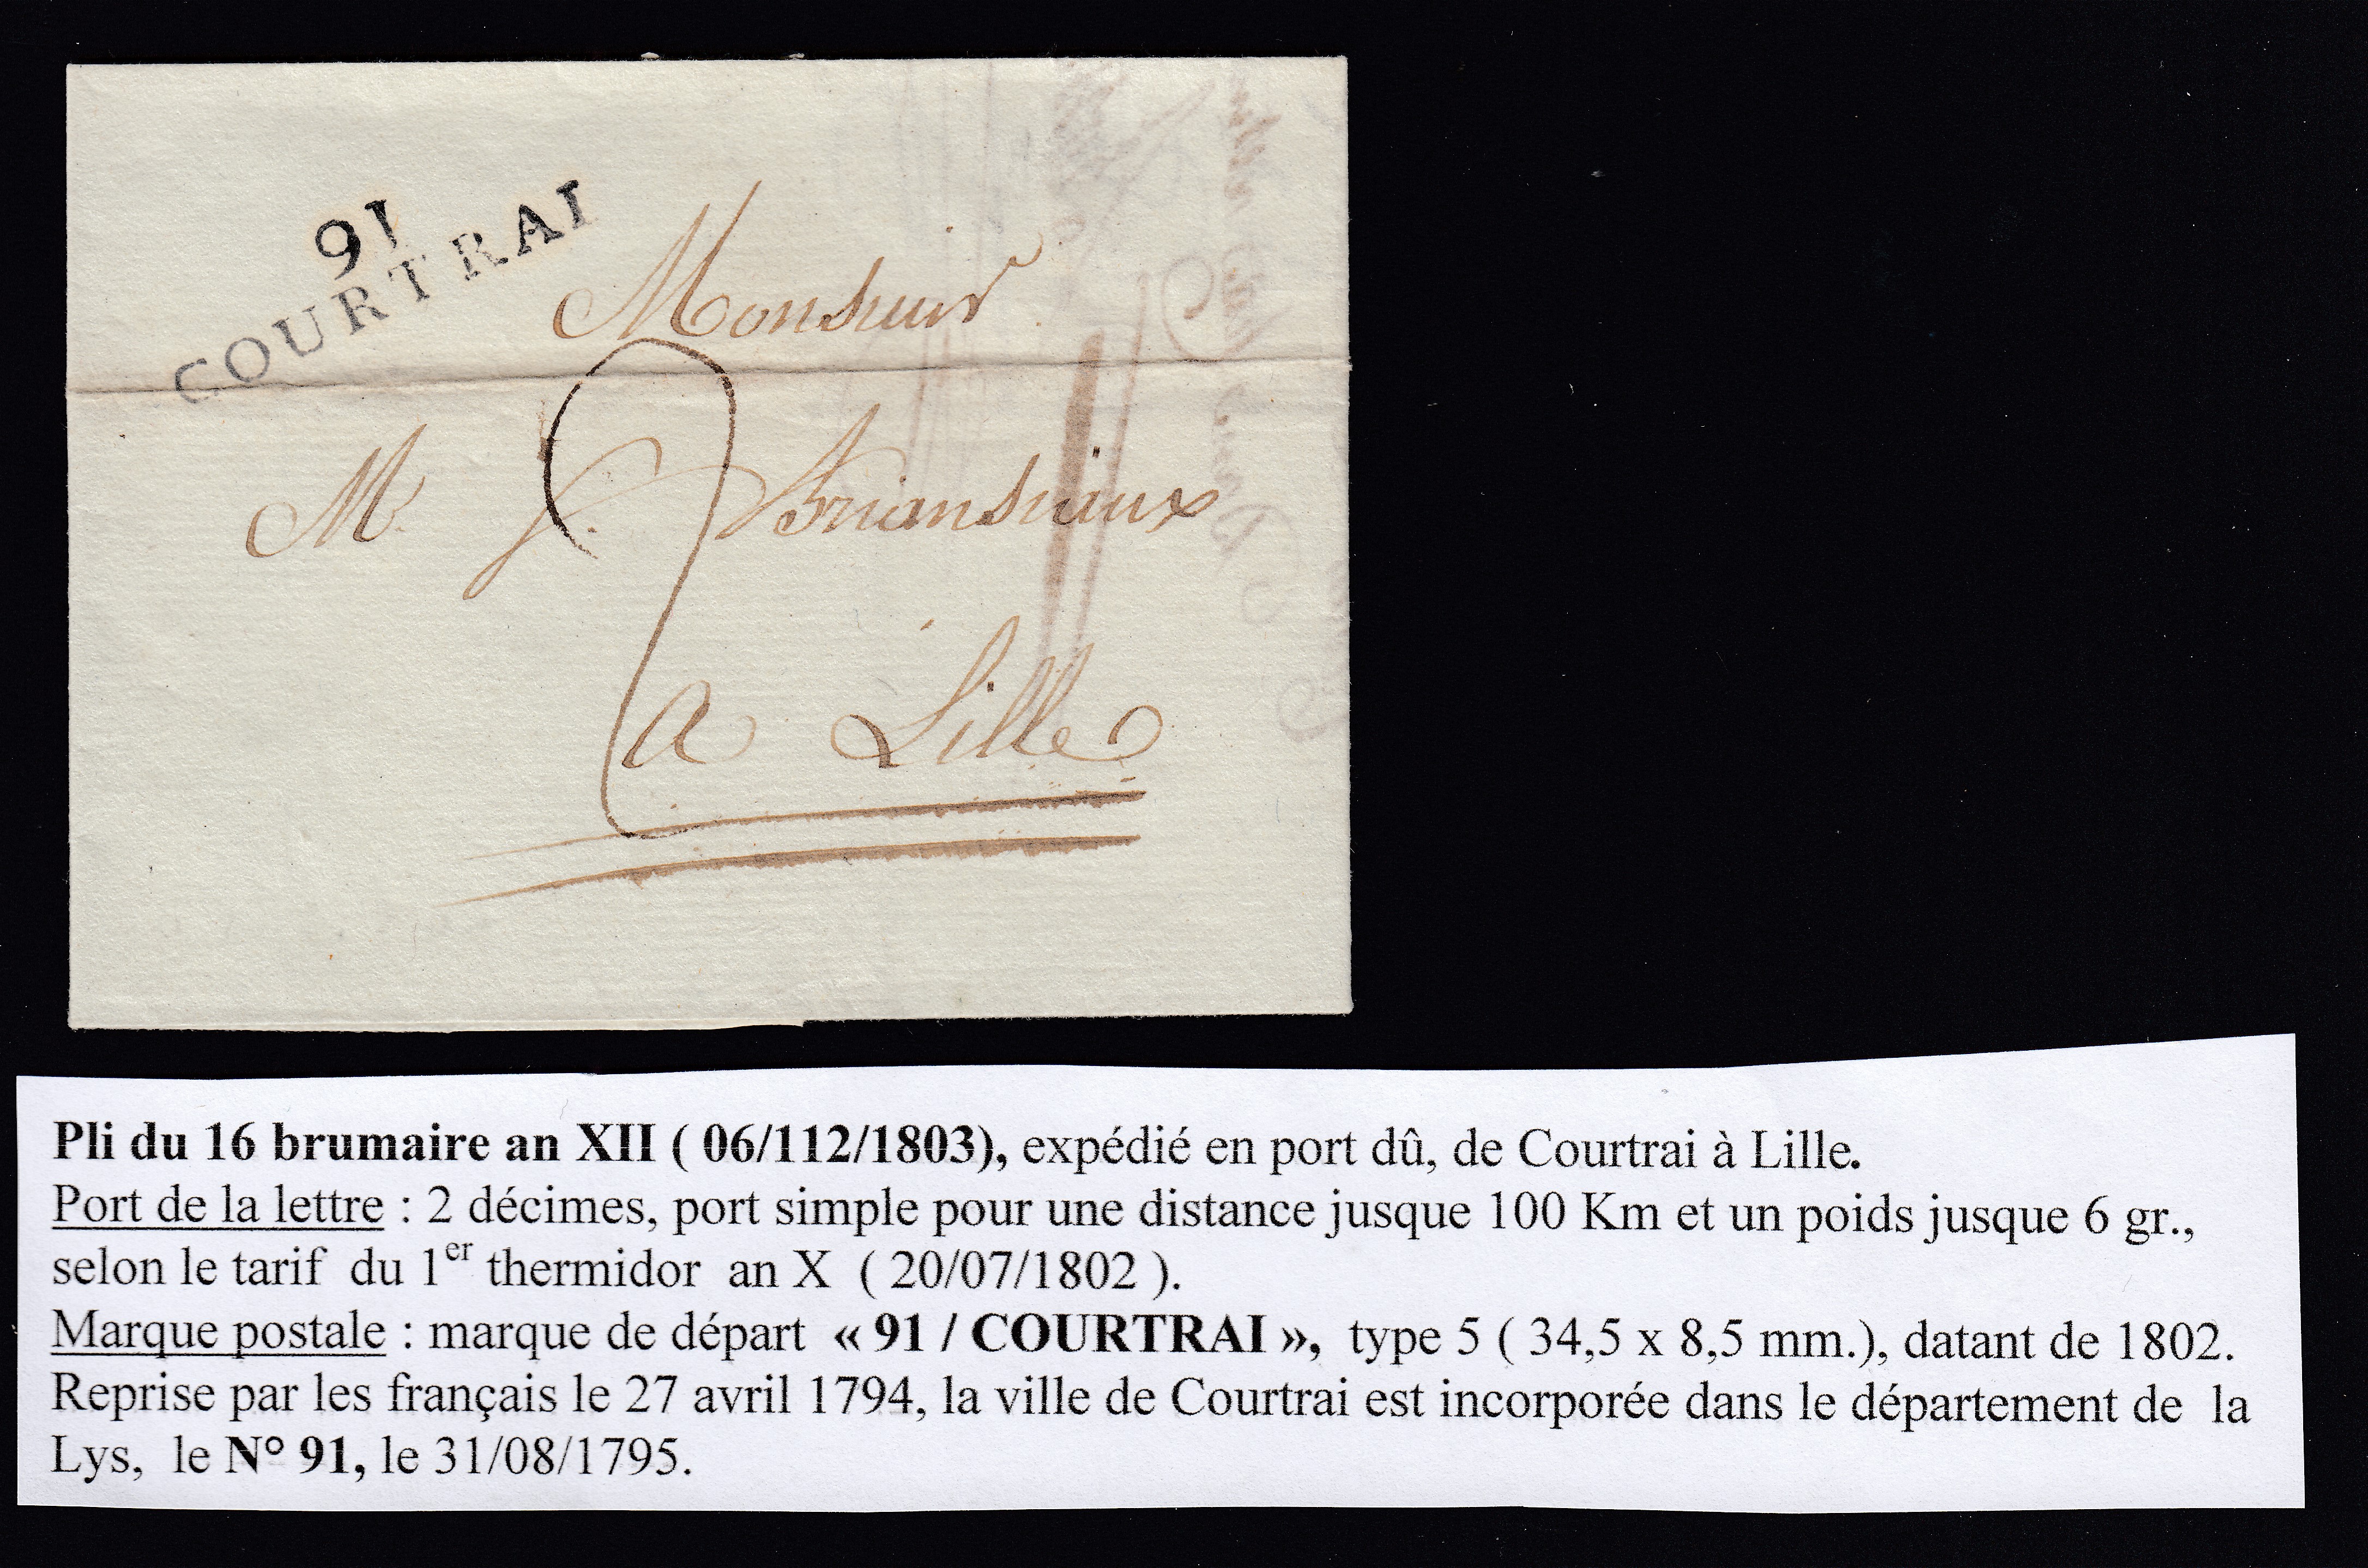 91
COURTRAI
Monsieur
M. f. Briansiaux
a Lille
Pli du 16 brumaire an XII ( 06/112/1803), expédié en port dû, de Courtrai à Lille.
Port de la lettre : 2 décimes, port simple pour une distance jusque 100 Km et un poids jusque 6 gr.,
selon le tarif du 1er thermidor an X ( 20/07/1802 ).
Marque postale : marque de départ « 91 / COURTRAI », type 5 ( 34,5 x 8,5 mm.), datant de 1802.
Reprise par les français le 27 avril 1794, la ville de Courtrai est incorporée dans le département de la
Lys, le N° 91, le 31/08/1795.